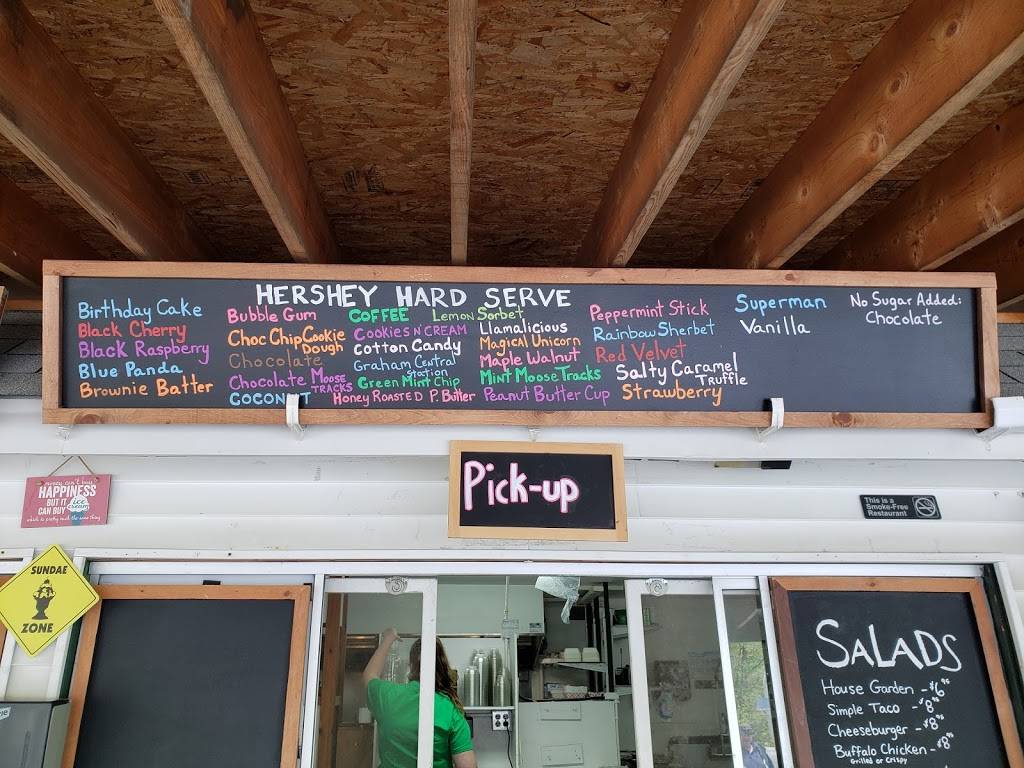 HERSHEY HARD SERVE
Birthday Cake
Black Cherry
Black Raspberry
Blue Panda
Brownie Batter
Bubble Gum
Choc Chip Cookie
Dough
Chocolate
Chocolate Moose
TRACKS
COCONUT
COFFEE
COOKIES N' CREAM
Cotton Candy
Graham Central
Station
Green Mint Chip
Honey ROASTED P. Butter
Lemon Sorbet
Llamalicious
Magical Unicorn
Maple Walnut
Mint Moose Tracks
Peanut Butter Cup
Peppermint Stick
Rainbow Sherbet
Red Velvet
Salty Caramel
Truffle
Strawberry
Superman
Vanilla
No Sugar Added:
Chocolate
Pick-up
money can't buy
HAPPINESS
BUT IT
CAN BUY ice
cream
which is pretty much the same thing
This is a
Smoke-Free
Restaurant
SUNDAE
ZONE
SALADS
House Garden - $6
Simple Taco - $8
Cheeseburger - $8
Buffalo Chicken - $8
Grilled or Crispy